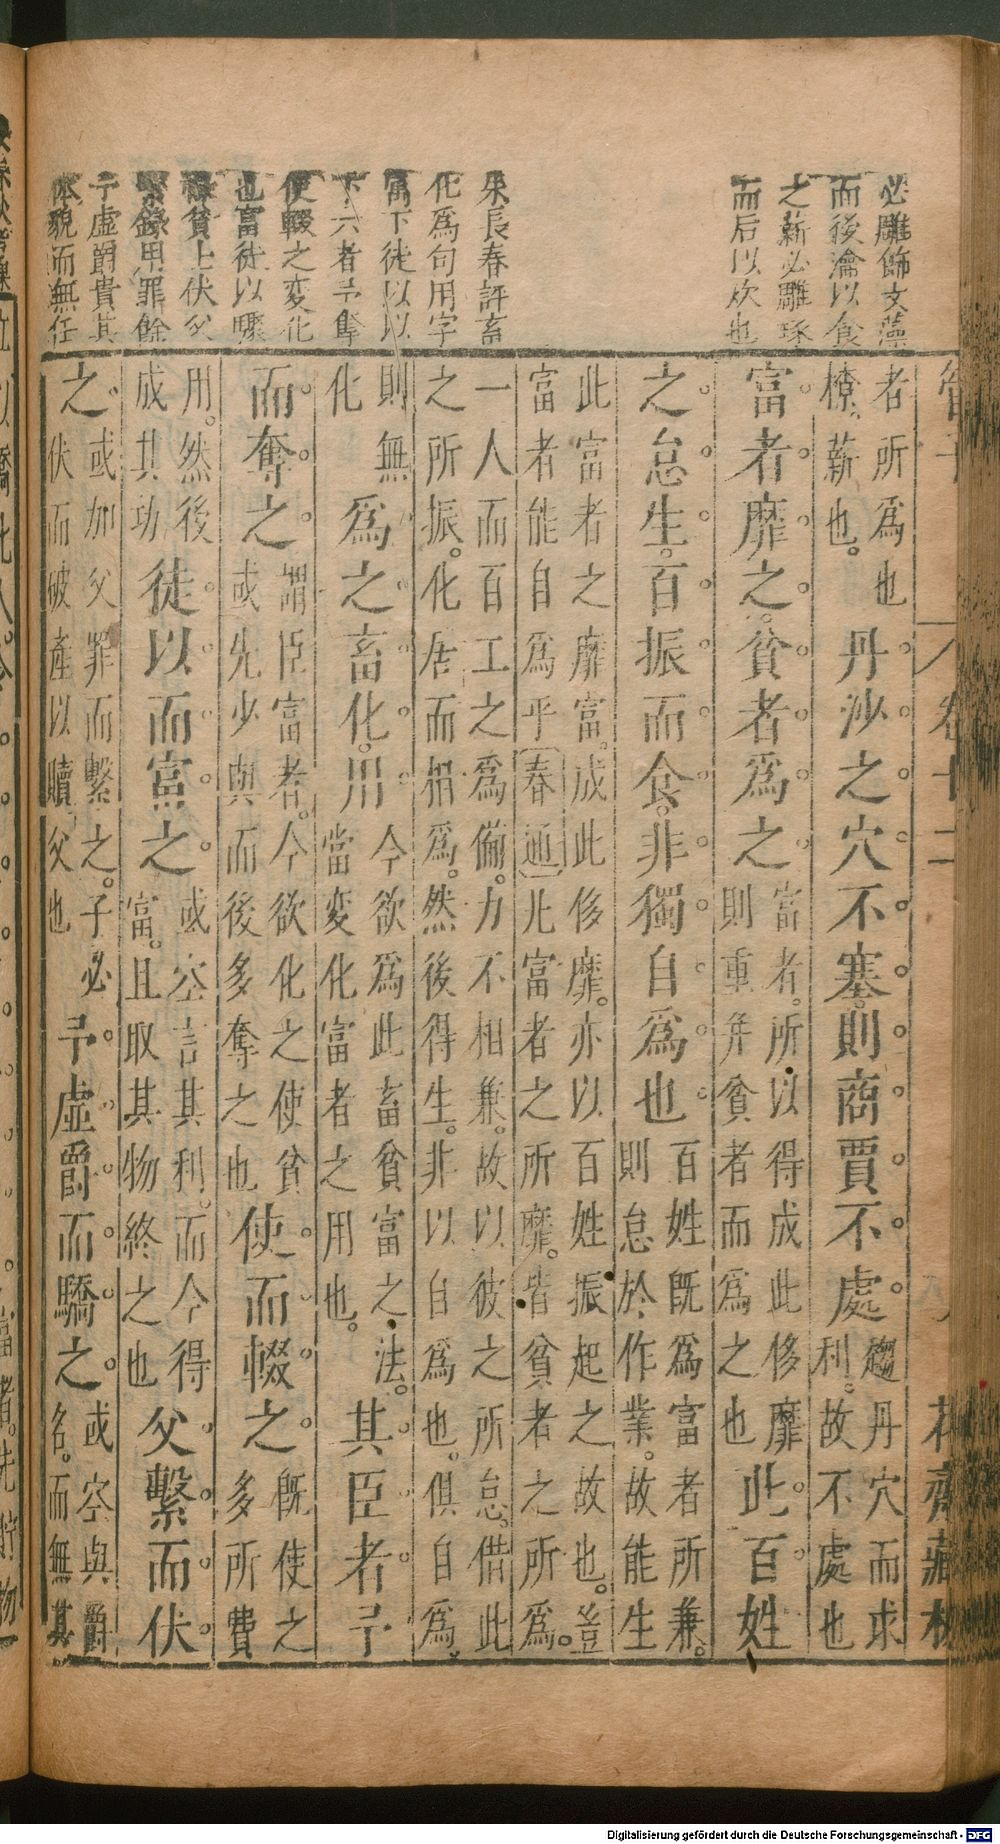 必雕飾文藻
而後瀹以食
之薪必雕琢
而后以炊也
朱長春評畜
化爲句用字
富下徒以以
下六者予奪
使輟之変化
也富徒以驟
祿貧上伏父
繫錄甲罪餘
予虛爵貴其
体貌而無任
卷十二
花齋藏板
者所爲也
橑。薪也。
丹沙之穴不塞。則商賈不處。
趨丹穴而求
利。故不處也
富者靡之。貧者爲之
富者。所以得成此侈靡
則重斉貧者而爲之也
此。百姓
之怠生。百振而食。非獨自爲也
百姓既爲富者所兼。
則怠於作業。故能生
此富者之靡富。成此侈靡。亦以百姓振起之故也。豈
富者能自爲乎〔春通〕凡富者之所靡。皆貧者之所爲。
一人而百工之爲備。力不相兼。故以彼之所怠。借此
之所振。化居而相爲。然後得生。非以自爲也。俱自爲。
則無
化
爲之。畜化。用
今欲爲此畜貧富之法。
當変化富者之用也。
其臣者予
而奪之
謂臣富者。今欲化之使貧
或先少與而後多奪之也
使而輟之
既使之
多所費
用。然後
成其功
徒以而富之
或空言其利。而今得
富。且取其物終之也
父繫而伏
之。
或加父罪而繫之。子必
伏而破產以贖父也
予虛爵而驕之
或空與爵
名。而無其